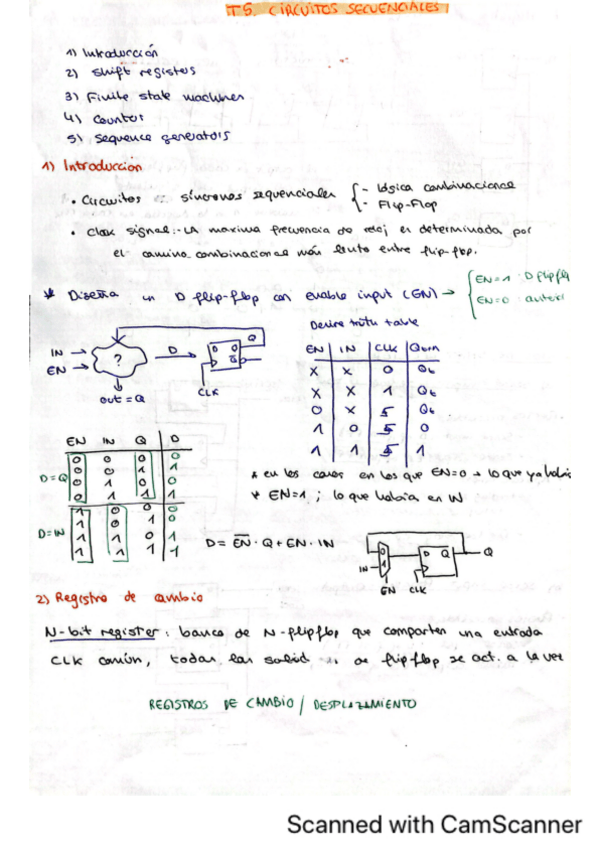 T5. CIRCUITOS SECUENCIALES
1) Introducción
2) Shift registers
3) Finite state machines
4) Counter
5) Sequence generators
1) Introduccion
• Circuitos síncronos sequenciales { - Lógica combinacional
- Flip-Flop
• Clock signal: - LA maxima frecuencia de reloj es determinada por
el camino combinacional más lento entre flip-flop.
* Diseña un D flip-flop con enable input (EN) → { EN=1 : D flip flp
EN=0 :
Derive truth table
IN
EN
?
D
D Q
Q
CLK
out = Q
EN | IN | CLK | Qt+n
X X 0 Qt
X X 1 Qt
0 X Qt
1 0 0
1 1 1
EN IN Q D
D=Q
0 0 0 0
0 0 1 1
0 1 0 0
0 1 1 1
D=IN
1 0 0 0
1 0 1 0
1 1 0 1
1 1 1 1
* en los casos en los que EN=0 → lo que ya había
* EN=1 ; lo que había en IN
D = E̅N̅ · Q + EN · IN
0
1
IN
EN
D Q
CLK
Q
2) Registro de cambio
N-bit register : banco de N-flip flop que comparten una entrada
CLK común, todas las salid de flip flop se act. a la vez
REGISTROS DE CAMBIO / DESPLAZAMIENTO
Scanned with CamScanner